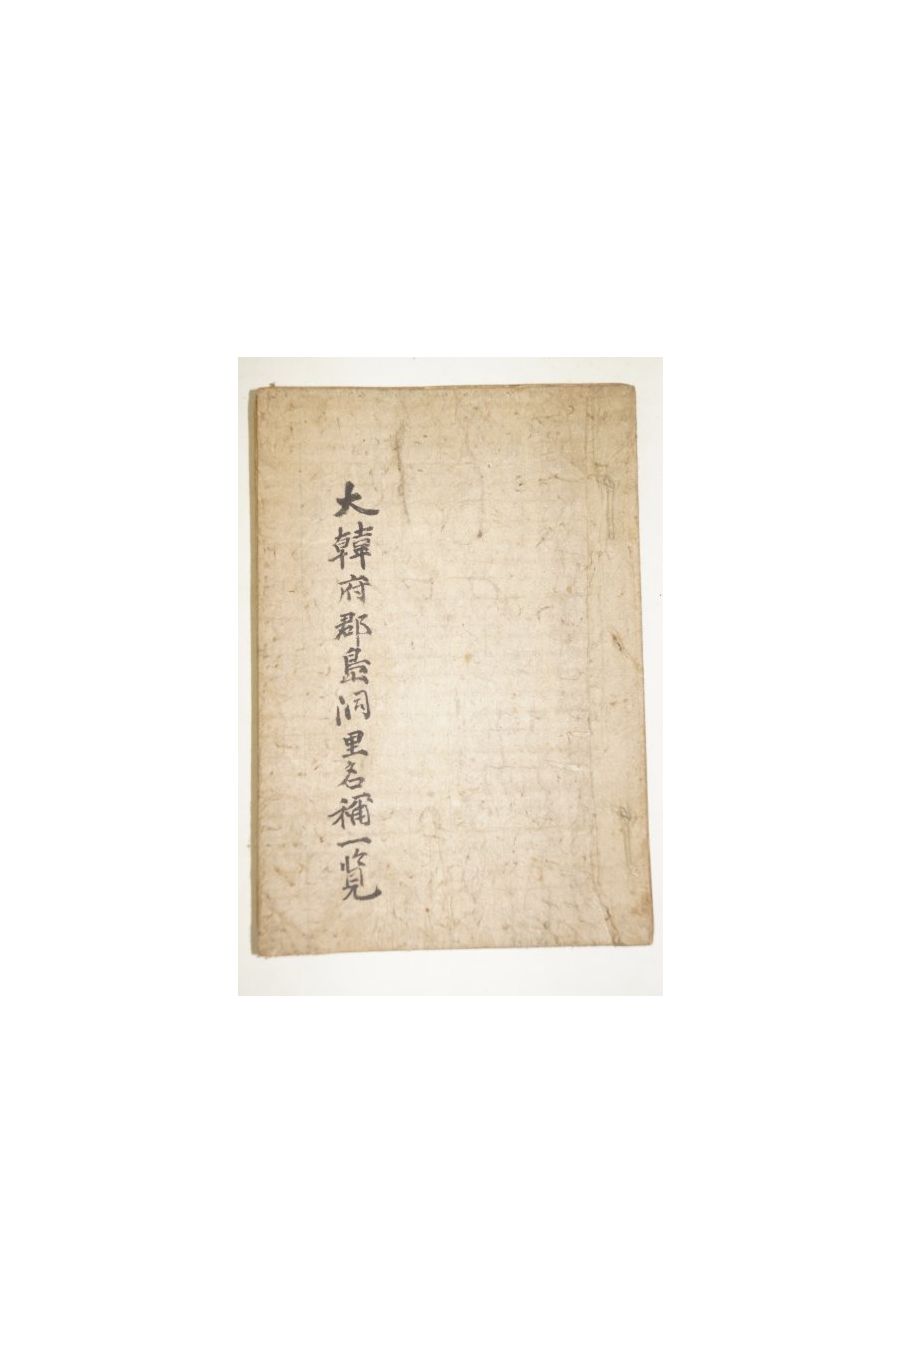 大韓府郡島洞里名稱一覧